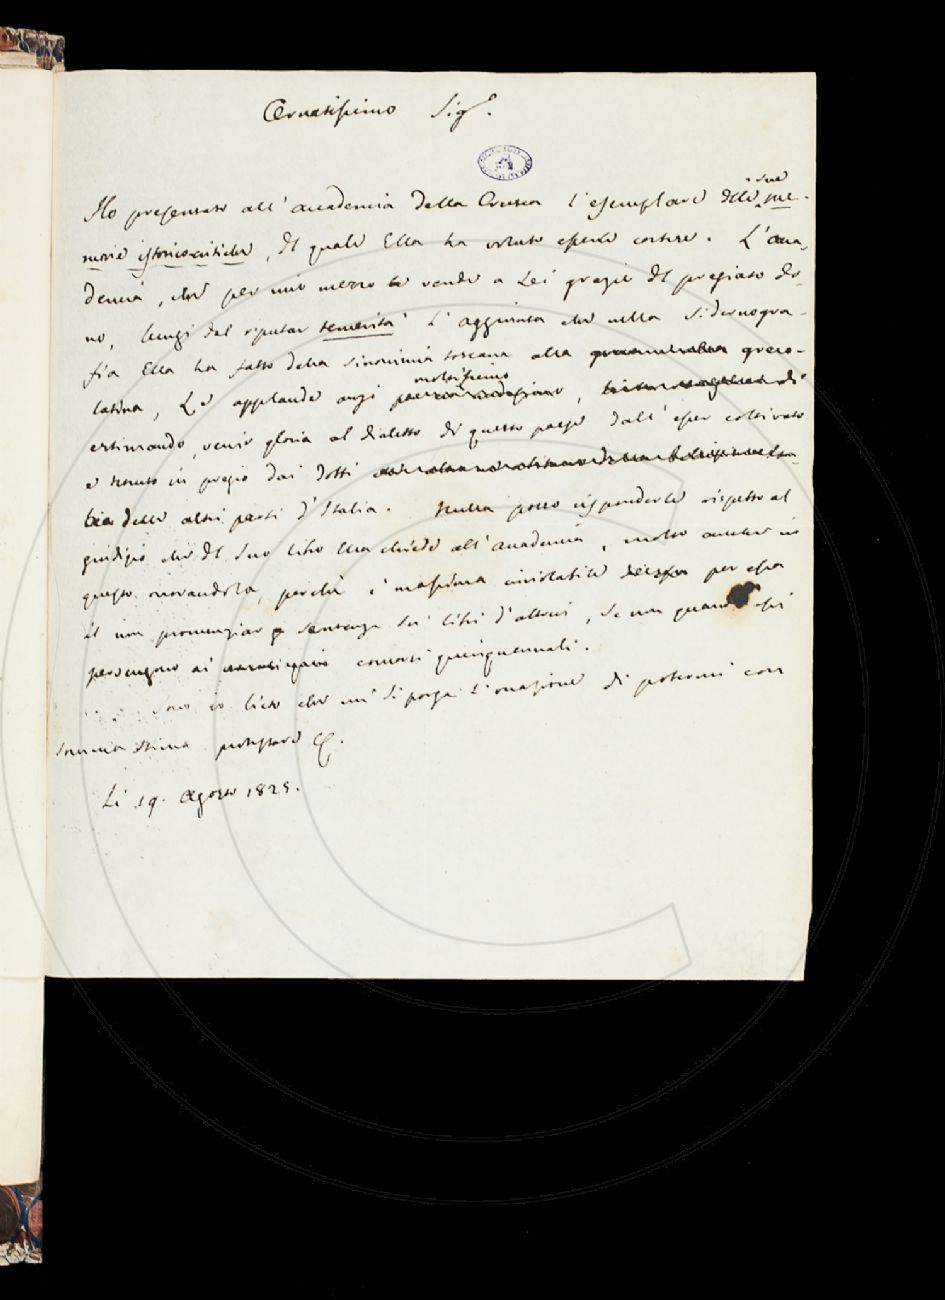 Ornatissimo Sig.r
Ho presentato all'accademia della Crusca l'esemplare delle sue me-
morie istorico-critiche, del quale Ella ha voluto esserle cortese. L'acca-
demia, che per mio mezzo rende a Lei grazie del pregiato do-
no, lungi dal riputar temerità l'aggiunta che nella Sidernogra-
fia Ella ha fatto della sinonimia toscana alla greco-
latina, Le applaude anzi moltissimo,
estimando venir gloria al dialetto di questo paese dall'esser coltivato
e tenuto in pregio dai dotti
delle altri parti d'Italia. Nulla posso risponderle rispetto al
giudizio che del Suo libro Ella chiede all'accademia, molto anche in
questo onorandola, perchè è massima inviolabile per essa
il non pronunziar sentenza sui libri d'altrui, se non quando essi
pervengono ai concorsi quinquennali.
Sono io lieto che mi si porga l'occasione di potermi con
somma stima protestare &.
Li 19. Agosto 1825.